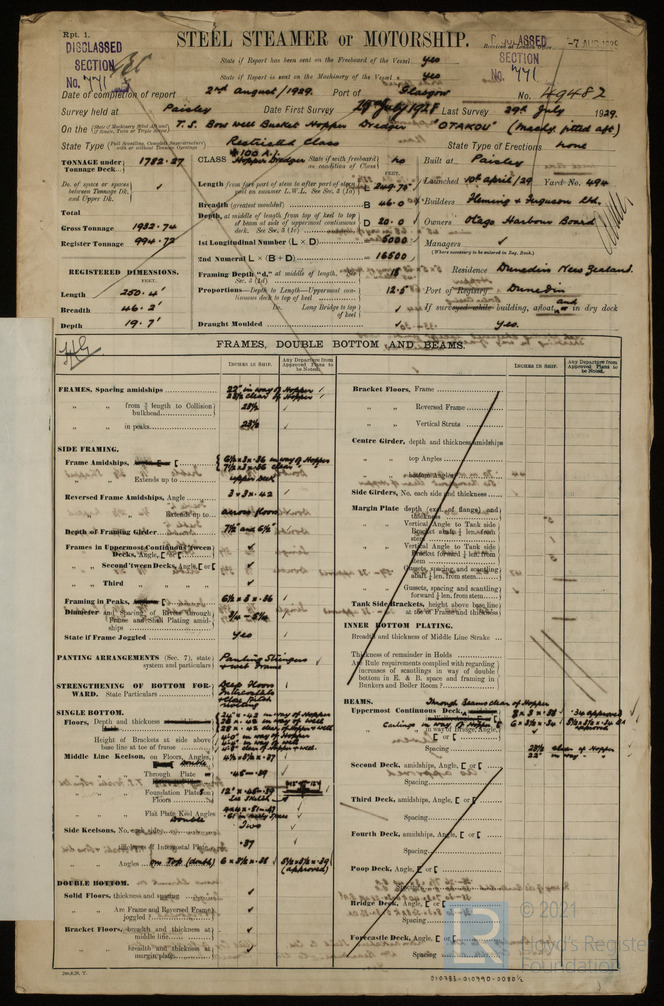 Rpt. 1.
STEEL STEAMER OR MOTORSHIP.
DISCLASSED
SECTION
No. 771
DISCLASSED
SECTION
No. 771
-7 AUG 1929
State if Report has been sent on the Freeboard of the Vessel yes
State if Report is sent on the Machinery of the Vessel yes
Date of completion of report 2nd August/1929. Port of Glasgow No. 49487
Survey held at Paisley Date First Survey Last Survey 29th July 1929.
On the T.S. Bow Well Bucket Hopper Dredger "OTAKOU" (Machy. fitted aft)
State Type Restricted Class State Type of Erections none
TONNAGE under Tonnage Deck 1782.27
Do. of space or spaces between Tonnage Dk. and Upper Dk.
Total
Gross Tonnage 1982.74
Register Tonnage 994.72
REGISTERED DIMENSIONS.
FEET.
Length 250.4'
Breadth 46.2'
Depth 19.7'
CLASS Hopper Dredger State if with freeboard as condition of Class no
FEET.
Length from fore part of stem to after part of stern L 249.75
Breadth (greatest moulded) B 46.0
Depth, at middle of length, from top of keel to top of beam at side of uppermost continuous deck. D 20.0
1st Longitudinal Number (L × D) 5000
2nd Numeral L × (B + D) 16500
Framing Depth "d," at middle of length. 15
Proportions—Depth to Length—Uppermost continuous deck to top of keel 12.5
Do. Long Bridge to top of keel
Draught Moulded
Built at Paisley
Launched 10th april/29 Yard No. 494
Builders Fleming & Ferguson Ltd.
Owners Otago Harbour Board
Managers
(Where necessary to be entered in Reg. Book.)
Residence Dunedin New Zealand.
Port of Registry Dunedin
If surveyed while building, afloat, and in dry dock
Yes.
FRAMES, DOUBLE BOTTOM AND BEAMS.
INCHES IN SHIP.
Any Departure from Approved Plans to be Noted.
FRAMES, Spacing amidships 22" in way of Hopper
23½ clear of Hopper
" " from ⅗ length to Collision bulkhead 23½
" " in peaks 23½
SIDE FRAMING.
Frame Amidships, 6½ × 3 × .36 in way of Hopper
" " Extends up to upper Deck
Reversed Frame Amidships, Angle 3 × 3 × .42
" " Extends up to across floors
Depth of Framing Girder 7½ and 6½"
Frames in Uppermost Continuous 'tween Decks, Angle, [ or [
" " Second 'tween Decks, Angle, [ or [
" " Third " "
Framing in Peaks, 6½ × 3 × .36
Diameter and Spacing of Rivets through Frame and Shell Plating amidships
State if Frame Joggled yes
PANTING ARRANGEMENTS (Sec. 7), state system and particulars Panting Stringers
STRENGTHENING OF BOTTOM FORWARD. State Particulars Deep Floors
SINGLE BOTTOM.
Floors, Depth and thickness
Height of Brackets at side above base line at toe of frame
Middle Line Keelson, on Floors, Angles,
" " Through Plate .45-.39
" " Foundation Plate on Floors
" " Flat Plate Keel Angles
Double
Side Keelsons, No. Two
" " thickness of Intercostal Plates .37
" " Angles on Top (double) 6 × 3½ × .38
(approved)
DOUBLE BOTTOM.
Solid Floors, thickness and spacing
" " Are Frame and Reversed Frame joggled?
Bracket Floors, breadth and thickness at middle line
" " breadth and thickness at margin plate
Bracket Floors, Frame
" " Reversed Frame
" " Vertical Struts
Centre Girder, depth and thickness amidships
" " top Angles
" " bottom Angles
Side Girders, No. each side and thickness
Margin Plate depth (excl. of flange) and thickness
" " Vertical Angle to Tank side Bracket abaft ¼ len. from stem
" " Vertical Angle to Tank side Bracket forward ¼ len. from stem
" " Gussets, spacing and scantling abaft ¼ len. from stem
" " Gussets, spacing and scantling forward ¼ len. from stem
Tank Side Brackets, height above base line at toe of Frame and thickness
INNER BOTTOM PLATING.
Breadth and thickness of Middle Line Strake
Thickness of remainder in Holds
Are Rule requirements complied with regarding increases of scantlings in way of double bottom in E. & B. space and framing in Bunkers and Boiler Room?
BEAMS. Through Beams clear of Hopper
Uppermost Continuous Deck,
in way of Bridge, Angle, [ or [
Spacing 23½ clear of Hopper
22" in way "
Second Deck, amidships, Angle, [ or [
Spacing
Third Deck, amidships, Angle, [ or [
Spacing
Fourth Deck, amidships, Angle, [ or [
Spacing
Poop Deck, Angle, [ or [
Spacing
Bridge Deck, Angle, [ or [
Spacing
Forecastle Deck, Angle, [ or [
Spacing
© 2021
Lloyd's Register
Foundation